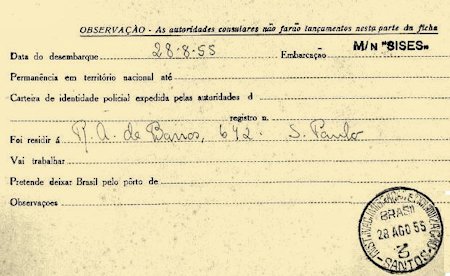 OBSERVAÇÃO - As autoridades consulares não farão lançamentos nesta parte da ficha
Data do desembarque 28-8-55 Embarcação M/N "SISES"
Permanência em território nacional até
Carteira de identidade policial expedida pelas autoridades d
registro n.
Foi residir á R. A. de Barros, 642. S. Paulo
Vai trabalhar
Pretende deixar Brasil pelo pôrto de
Observações
BRASIL
28 AGO 55
3
SANTOS